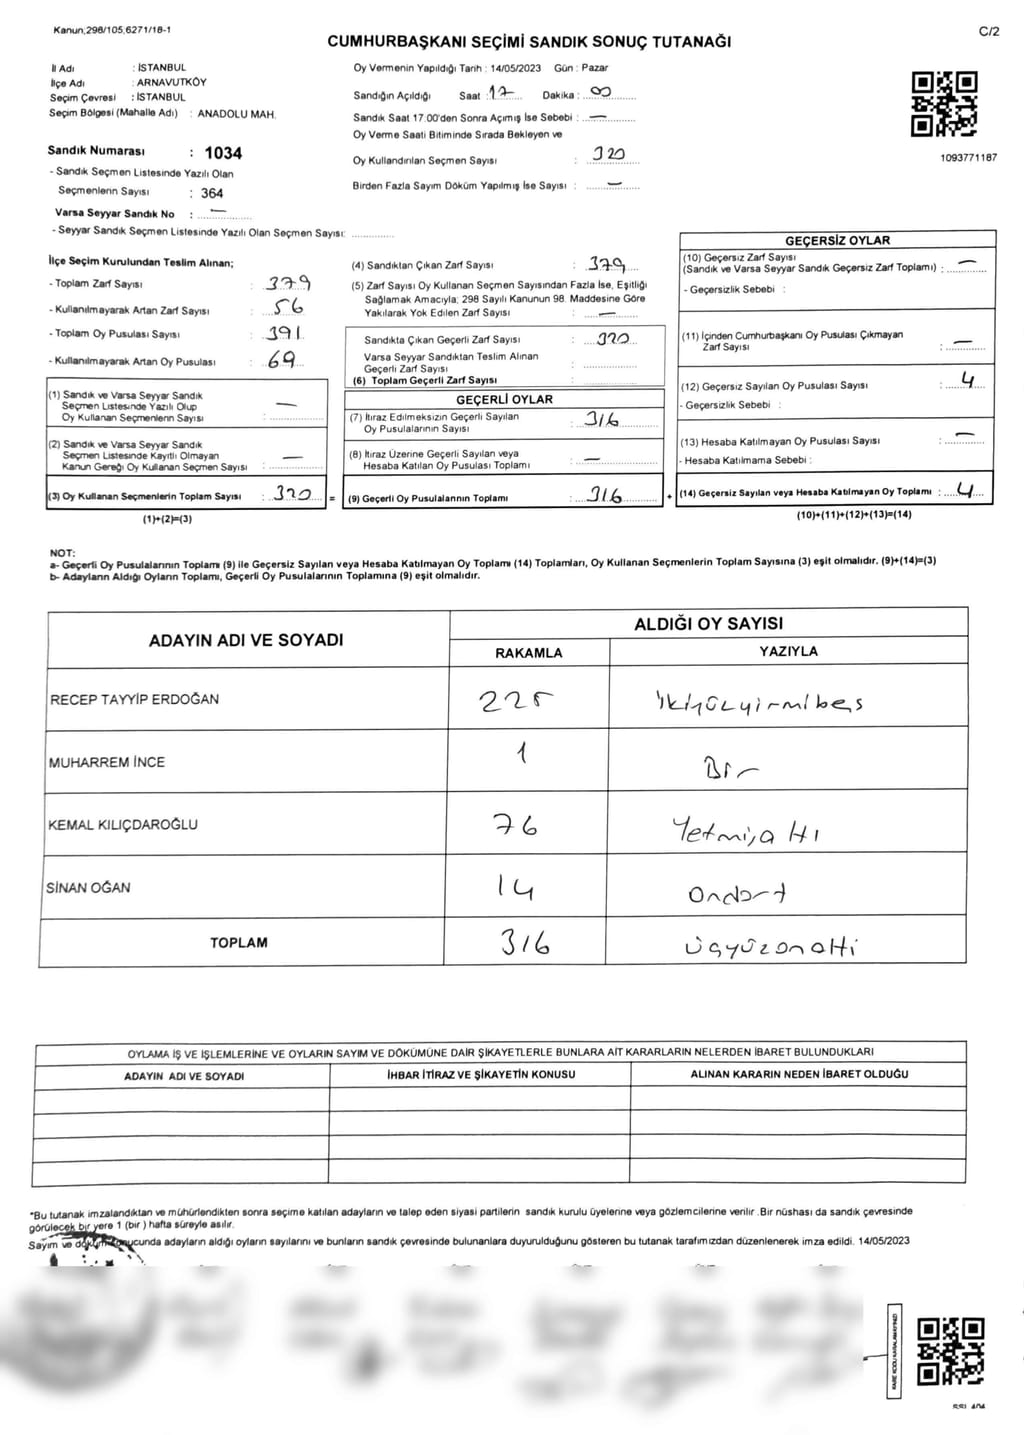 Kanun;298/105,6271/18-1
C/2
CUMHURBAŞKANI SEÇİMİ SANDIK SONUÇ TUTANAĞI
İl Adı : İSTANBUL
İlçe Adı : ARNAVUTKÖY
Seçim Çevresi : İSTANBUL
Seçim Bölgesi (Mahalle Adı) : ANADOLU MAH.
Sandık Numarası : 1034
- Sandık Seçmen Listesinde Yazılı Olan
Seçmenlerin Sayısı : 364
Varsa Seyyar Sandık No : —
- Seyyar Sandık Seçmen Listesinde Yazılı Olan Seçmen Sayısı: ..............
Oy Vermenin Yapıldığı Tarih : 14/05/2023 Gün : Pazar
Sandığın Açıldığı Saat : 17 Dakika : 00
Sandık Saat 17.00'den Sonra Açımış İse Sebebi : —
Oy Verme Saati Bitiminde Sırada Bekleyen ve
Oy Kullandırılan Seçmen Sayısı : 320
Birden Fazla Sayım Döküm Yapılmış İse Sayısı : —
1093771187
İlçe Seçim Kurulundan Teslim Alınan;
- Toplam Zarf Sayısı : 379
- Kullanılmayarak Artan Zarf Sayısı : 56
- Toplam Oy Pusulası Sayısı : 391
- Kullanılmayarak Artan Oy Pusulası : 69
(1) Sandık ve Varsa Seyyar Sandık
Seçmen Listesinde Yazılı Olup
Oy Kullanan Seçmenlerin Sayısı : —
(2) Sandık ve Varsa Seyyar Sandık
Seçmen Listesinde Kayıtlı Olmayan
Kanun Gereği Oy Kullanan Seçmen Sayısı : —
(3) Oy Kullanan Seçmenlerin Toplam Sayısı : 320 =
(1)+(2)=(3)
(4) Sandıktan Çıkan Zarf Sayısı : 379
(5) Zarf Sayısı Oy Kullanan Seçmen Sayısından Fazla İse, Eşitliği
Sağlamak Amacıyla; 298 Sayılı Kanunun 98. Maddesine Göre
Yakılarak Yok Edilen Zarf Sayısı : —
Sandıkta Çıkan Geçerli Zarf Sayısı : 320
Varsa Seyyar Sandıktan Teslim Alınan
Geçerli Zarf Sayısı :
(6) Toplam Geçerli Zarf Sayısı :
GEÇERLİ OYLAR
(7) İtiraz Edilmeksizin Geçerli Sayılan
Oy Pusulalarının Sayısı : 316
(8) İtiraz Üzerine Geçerli Sayılan veya
Hesaba Katılan Oy Pusulası Toplamı : —
(9) Geçerli Oy Pusulalarının Toplamı : 316 +
GEÇERSİZ OYLAR
(10) Geçersiz Zarf Sayısı
(Sandık ve Varsa Seyyar Sandık Geçersiz Zarf Toplamı) : —
- Geçersizlik Sebebi :
(11) İçinden Cumhurbaşkanı Oy Pusulası Çıkmayan
Zarf Sayısı : —
(12) Geçersiz Sayılan Oy Pusulası Sayısı : 4
- Geçersizlik Sebebi :
(13) Hesaba Katılmayan Oy Pusulası Sayısı : —
- Hesaba Katılmama Sebebi :
(14) Geçersiz Sayılan veya Hesaba Katılmayan Oy Toplamı : 4
(10)+(11)+(12)+(13)=(14)
NOT:
a- Geçerli Oy Pusulalarının Toplamı (9) ile Geçersiz Sayılan veya Hesaba Katılmayan Oy Toplamı (14) Toplamları, Oy Kullanan Seçmenlerin Toplam Sayısına (3) eşit olmalıdır. (9)+(14)=(3)
b- Adayların Aldığı Oyların Toplamı, Geçerli Oy Pusulalarının Toplamına (9) eşit olmalıdır.
ADAYIN ADI VE SOYADI
ALDIĞI OY SAYISI
RAKAMLA YAZIYLA
RECEP TAYYİP ERDOĞAN 225 ikiyüzyirmibeş
MUHARREM İNCE 1 Bir
KEMAL KILIÇDAROĞLU 76 Yetmişaltı
SİNAN OĞAN 14 Ondört
TOPLAM 316 üçyüzonaltı
OYLAMA İŞ VE İŞLEMLERİNE VE OYLARIN SAYIM VE DÖKÜMÜNE DAİR ŞİKAYETLERLE BUNLARA AİT KARARLARIN NELERDEN İBARET BULUNDUKLARI
ADAYIN ADI VE SOYADI İHBAR İTİRAZ VE ŞİKAYETİN KONUSU ALINAN KARARIN NEDEN İBARET OLDUĞU
*Bu tutanak imzalandıktan ve mühürlendikten sonra seçime katılan adayların ve talep eden siyasi partilerin sandık kurulu üyelerine veya gözlemcilerine verilir .Bir nüshası da sandık çevresinde
görülecek bir yere 1 (bir ) hafta süreyle asılır.
Sayım ve döküm sonucunda adayların aldığı oyların sayılarını ve bunların sandık çevresinde bulunanlara duyurulduğunu gösteren bu tutanak tarafımızdan düzenlenerek imza edildi. 14/05/2023
KARE KODU KARALAMAYINIZ!